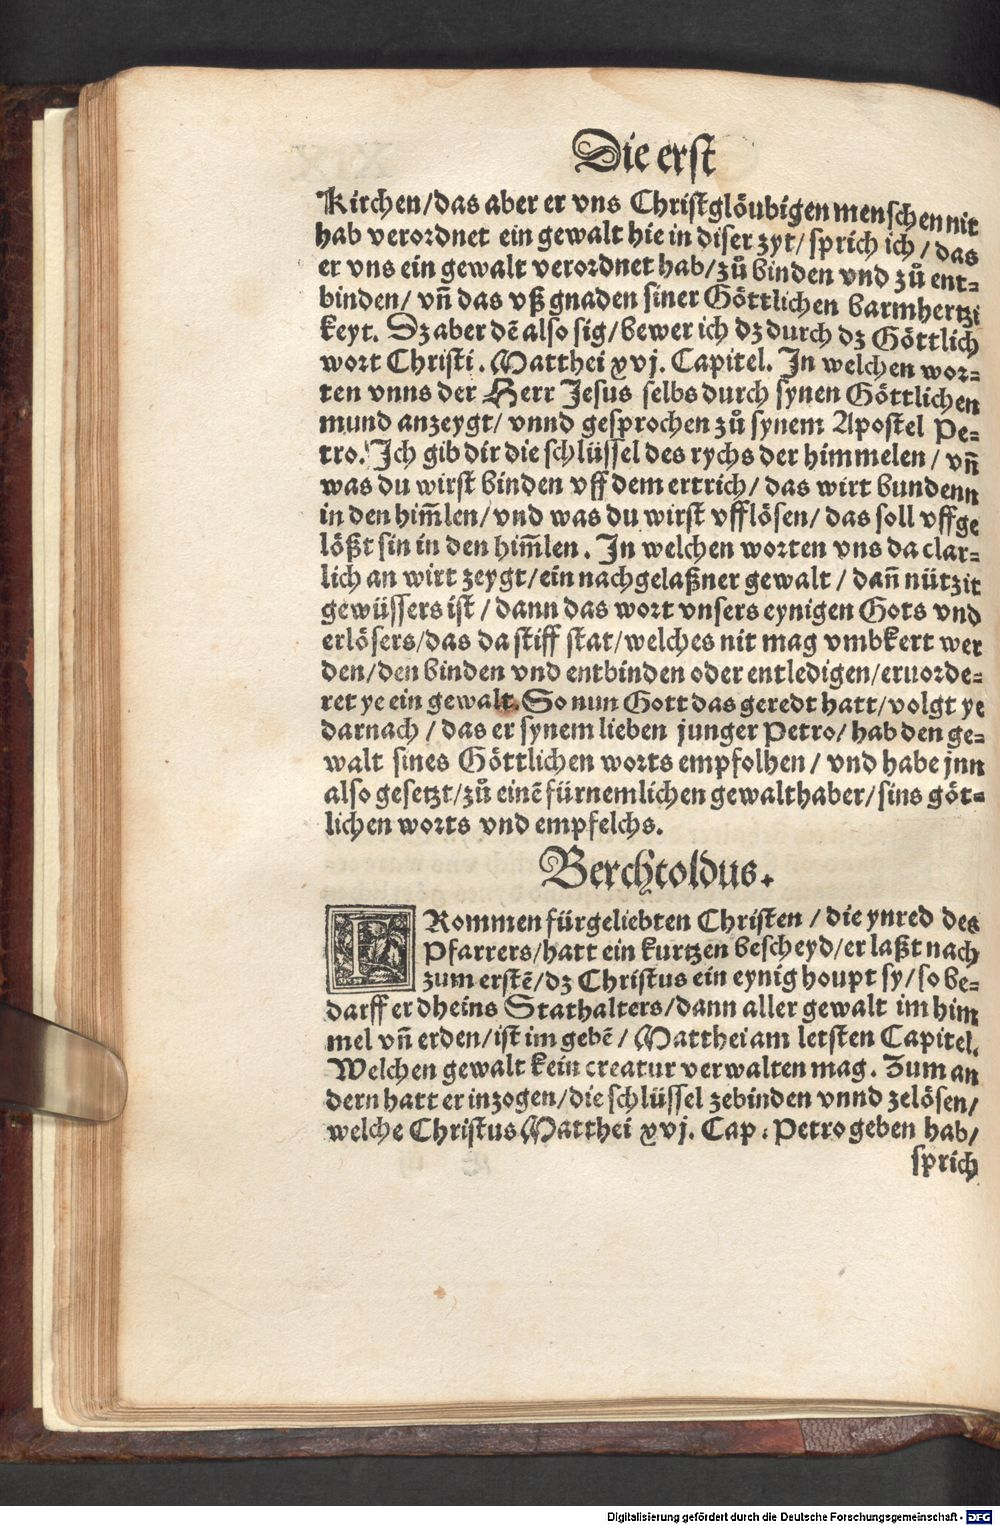 Die erst
Kirchen/das aber er vns Christglöubigen menschen nit
hab verordnet ein gewalt hie in diser zyt/ sprich ich / das
er vns ein gewalt verordnet hab/zuͦ binden vnd zuͦ ent⸗
binden/ vñ das vß gnaden siner Göttlichen barmhertzi
keyt. Dz aber dē also sig/bewer ich dz durch dz Göttlich
wort Christi. Matthei xvj. Capitel. In welchen wor⸗
ten vnns der Herr Jesus selbs durch synen Göttlichen
mund anzeygt/ vnnd gesprochen zuͦ synem Apostel Pe⸗
tro. Ich gib dir die schlüssel des rychs der himmelen / vñ
was du wirst binden vff dem ertrich/ das wirt bundenn
in den him̄len/ vnd was du wirst vfflösen/ das soll vffge
lößt sin in den him̄len. In welchen worten vns da clar⸗
lich an wirt zeygt/ein nachgelaßner gewalt / dañ nützit
gewüssers ist / dann das wort vnsers eynigen Gots vnd
erlösers/das da stiff stat/welches nit mag vmbkert wer
den/den binden vnd entbinden oder entledigen/eruorde⸗
ret ye ein gewalt. So nun Gott das geredt hatt/volgt ye
darnach / das er synem lieben junger Petro/ hab den ge⸗
walt sines Göttlichen worts empfolhen / vnd habe jnn
also gesetzt/zuͦ einē fürnemlichen gewalthaber/sins göt⸗
lichen worts vnd empfelchs.
Berchtoldus.
FRommen fürgeliebten Christen / die ynred des
Pfarrers/hatt ein kurtzen bescheyd/er laßt nach
zum erstē/dz Christus ein eynig houpt sy/so be⸗
darff er dheins Stathalters/dann aller gewalt im him
mel vñ erden/ist im gebē / Matthei am letsten Capitel.
Welchen gewalt kein creatur verwalten mag. Zum an
dern hatt er inzogen/die schlüssel zebinden vnnd zelösen/
welche Christus Matthei xvj. Cap. Petro geben hab/
sprich
Digitalisierung gefördert durch die Deutsche Forschungsgemeinschaft - DFG